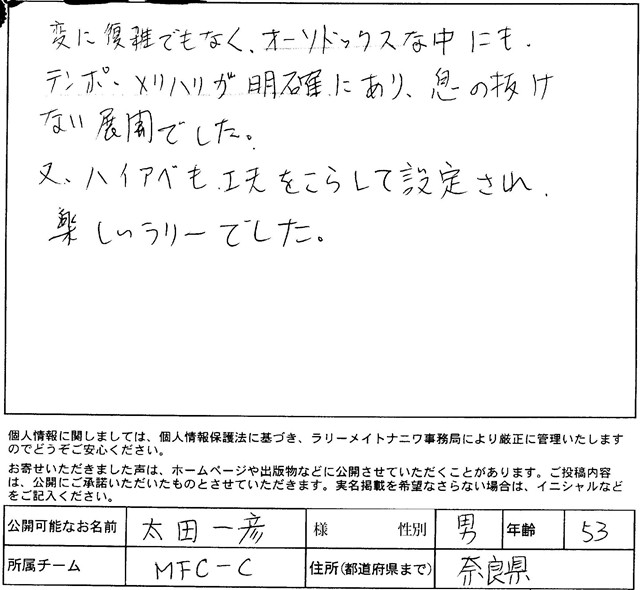 変に複雑でもなく、オーソドックスな中にも、
テンポ、メリハリが明確にあり、息の抜け
ない展開でした。
又、ハイアベも工夫をこらして設定され、
楽しいラリーでした。
個人情報に関しましては、個人情報保護法に基づき、ラリーメイトナニワ事務局により厳正に管理いたします
のでどうぞご安心ください。
お寄せいただきました声は、ホームページや出版物などに公開させていただくことがあります。ご投稿内容
は、公開にご承諾いただいたものとさせていただきます。実名掲載を希望なさらない場合は、イニシャルなど
をご記入ください。
公開可能なお名前 太田一彦 様 性別 男 年齢 53
所属チーム MFC-C 住所(都道府県まで) 奈良県